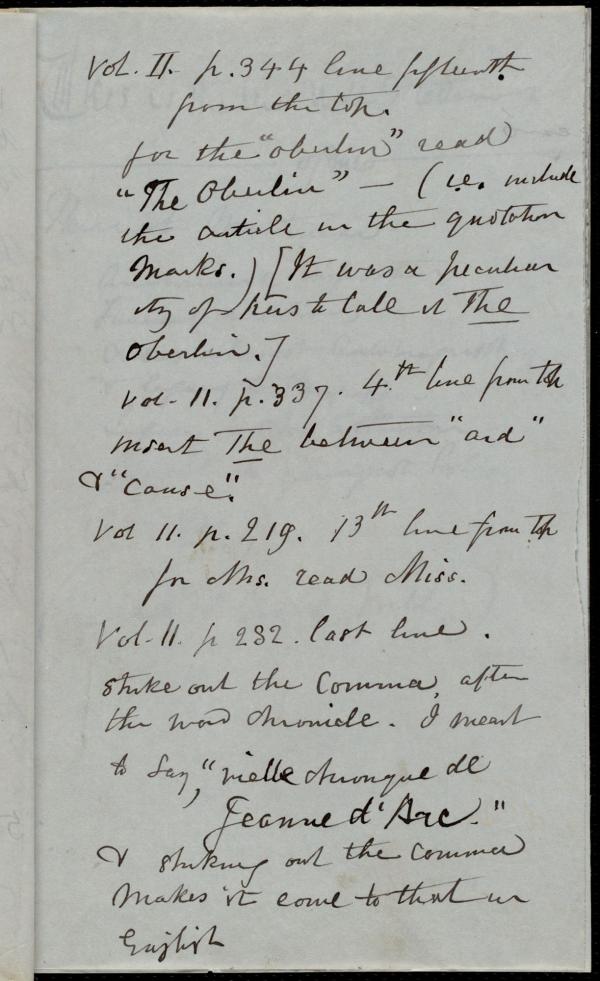 Vol. II. p. 344 line fifteenth
from the top.
for the "Oberlin" read
"The Oberlin" — (i.e. include
the article in the quotation
Marks.) [It was a peculiar
ity of hers to call it The
Oberlin.]
Vol. II. p. 337. 4th line from top
insert The between "and"
& "Cause".
Vol II. p. 219. 13th line from top
for Mrs. read Miss.
Vol. II. p 232. last line.
strike out the Comma, after
the word Chronicle. I meant
to say, "vielle chronque de
Jeanne d'Arc."
& striking out the comma
makes it come to that in
English